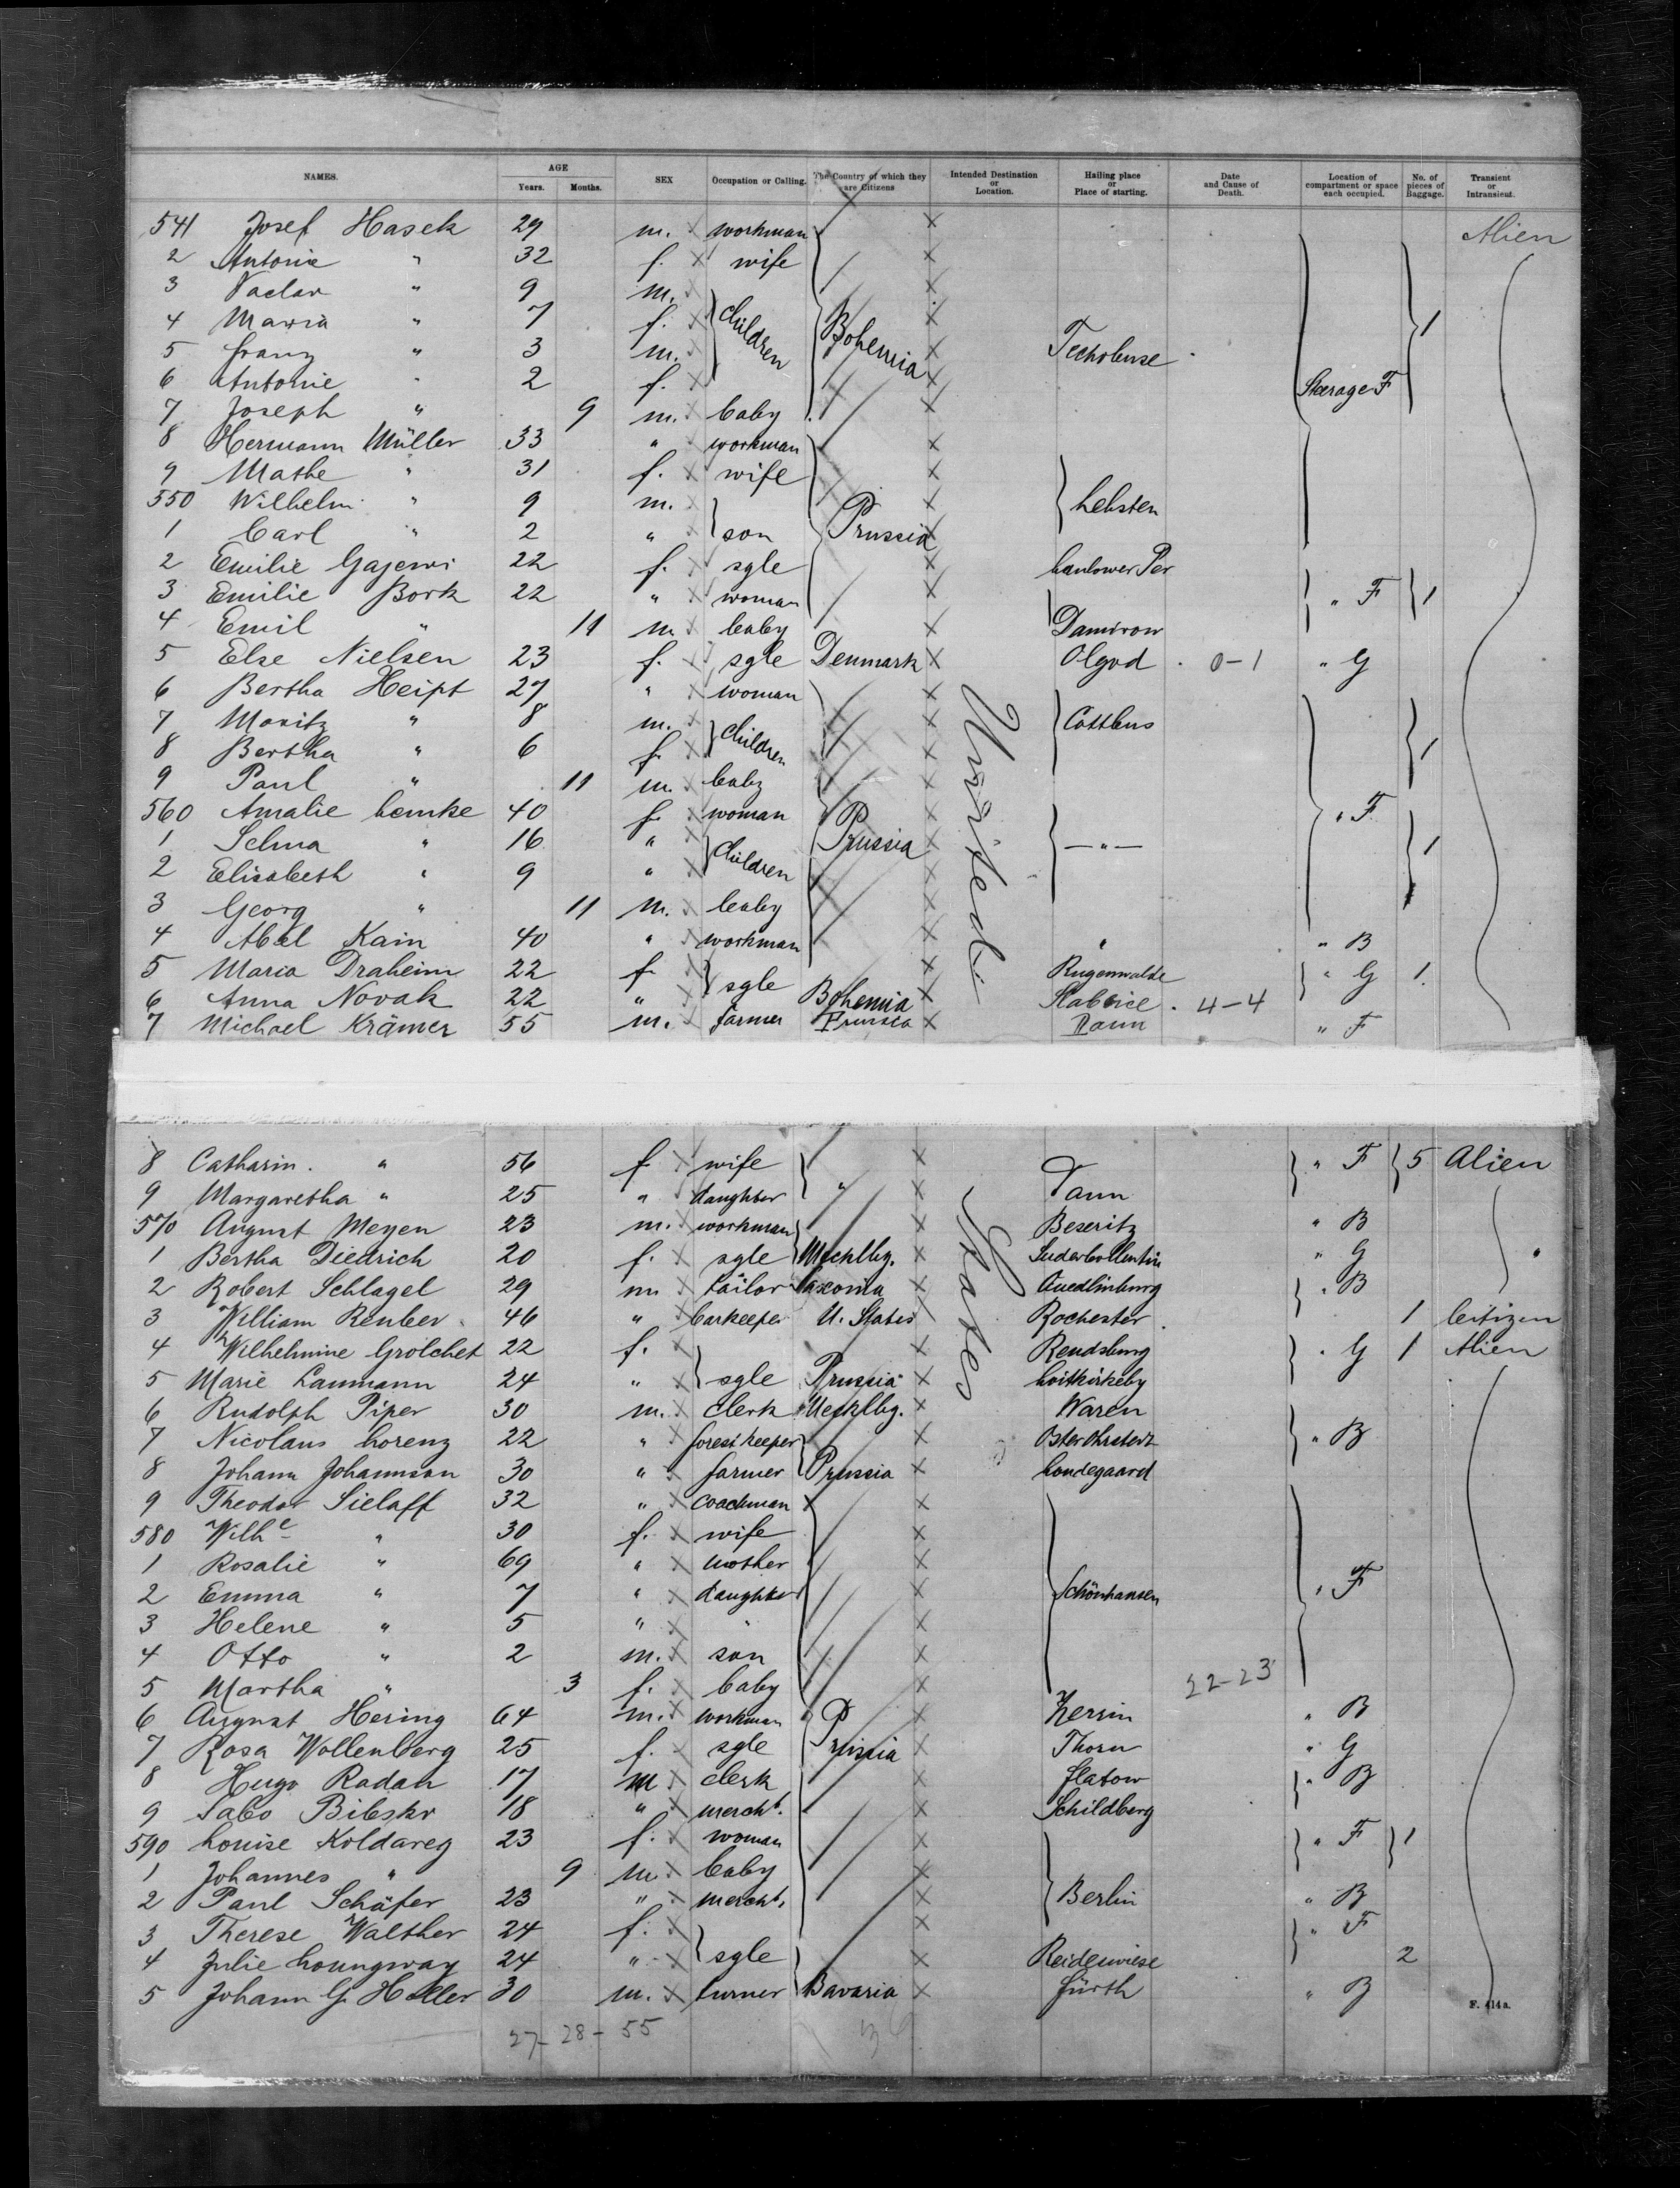 NAMES. AGE Years. Months. SEX Occupation or Calling. The Country of which they are Citizens Intended Destination or Location. Hailing place or Place of starting. Date and Cause of Death. Location of compartment or space each occupied. No. of pieces of Baggage. Transient or Intransient.
541 Josef Hasek 29 m. workman Alien
2 Antonie " 32 f. wife
3 Vaclav " 9 m.
4 Maria " 7 f. children Bohemia 1
5 Franz " 3 m. Techobuse
6 Antonie " 2 f. Steerage F
7 Joseph " 9 m. baby
8 Hermann Müller 33 " workman
9 Mathe " 31 f. wife
550 Wilhelm " 9 m. Lebsten
1 Carl " 2 " son Prussia
2 Emilie Gajewi 22 f. sgle
3 Emilie Bork 22 " woman " F 1
4 Emil " 11 m. baby Damirow
5 Else Nielsen 23 f. sgle Denmark Olgod 0-1 " G
6 Bertha Heipt 27 " woman
7 Moritz " 8 m. Cottbus
8 Bertha " 6 f. children 1
9 Paul " 11 m. baby
560 Amalie Lemke 40 f. woman " F
1 Selma " 16 " Prussia — " — 1
2 Elisabeth " 9 " children
3 Georg " 11 m. baby
4 Abel Kain 40 " workman " " B
5 Maria Draheim 22 f. sgle Rugenwalde " G 1
6 Anna Novak 22 " Bohemia Slabcice 4-4
7 Michael Krämer 55 m. farmer Prussia Tann " F
United
8 Catharin. " 56 f. wife " F 5 Alien
9 Margaretha " 25 " daughter " Tann
570 August Meyen 23 m. workman Beseritz " B
1 Bertha Diedrich 20 f. sgle Mecklbg. " G "
2 Robert Schlagel 29 m. tailor Saxonia Quedlinburg " B
3 William Renber 46 " barkeeper U. States Rochester 1 Citizen
4 Wilhelmine Grolchet 22 f. Rendsburg " G 1 Alien
5 Marie Laumann 24 " sgle Prussia Hoitkirkeby
6 Rudolph Piper 30 m. clerk Mecklbg. Waren
7 Nicolaus Lorenz 22 " forest keeper Oster Ohrstedt " B
8 Johann Johannson 30 " farmer Prussia Londegaard
9 Theodor Sielaff 32 " coachman
580 Wilhe " 30 f. wife
1 Rosalie " 69 " mother
2 Emma " 7 " daughter Schönhausen " F
3 Helene " 5 " "
4 Otto " 2 m. son
5 Martha " 3 f. baby 22-23
6 August Hering 64 m. workman Zerrin " B
7 Rosa Wollenberg 25 f. sgle Prussia Thorn " G
8 Hugo Radan 17 m clerk Flatow " B
9 Sabo Bibsko 18 " mercht. Schildberg
590 Louise Koldareg 23 f. woman " F 1
1 Johannes " 9 m. baby
2 Paul Schäfer 23 " mercht. Berlin " B
3 Therese Walther 24 f. " F
4 Julie Loungway 24 " sgle Reidenwiese 2
5 Johann G. Heller 30 m. turner Bavaria Fürth " B
States
F. 414a.
27-28-55